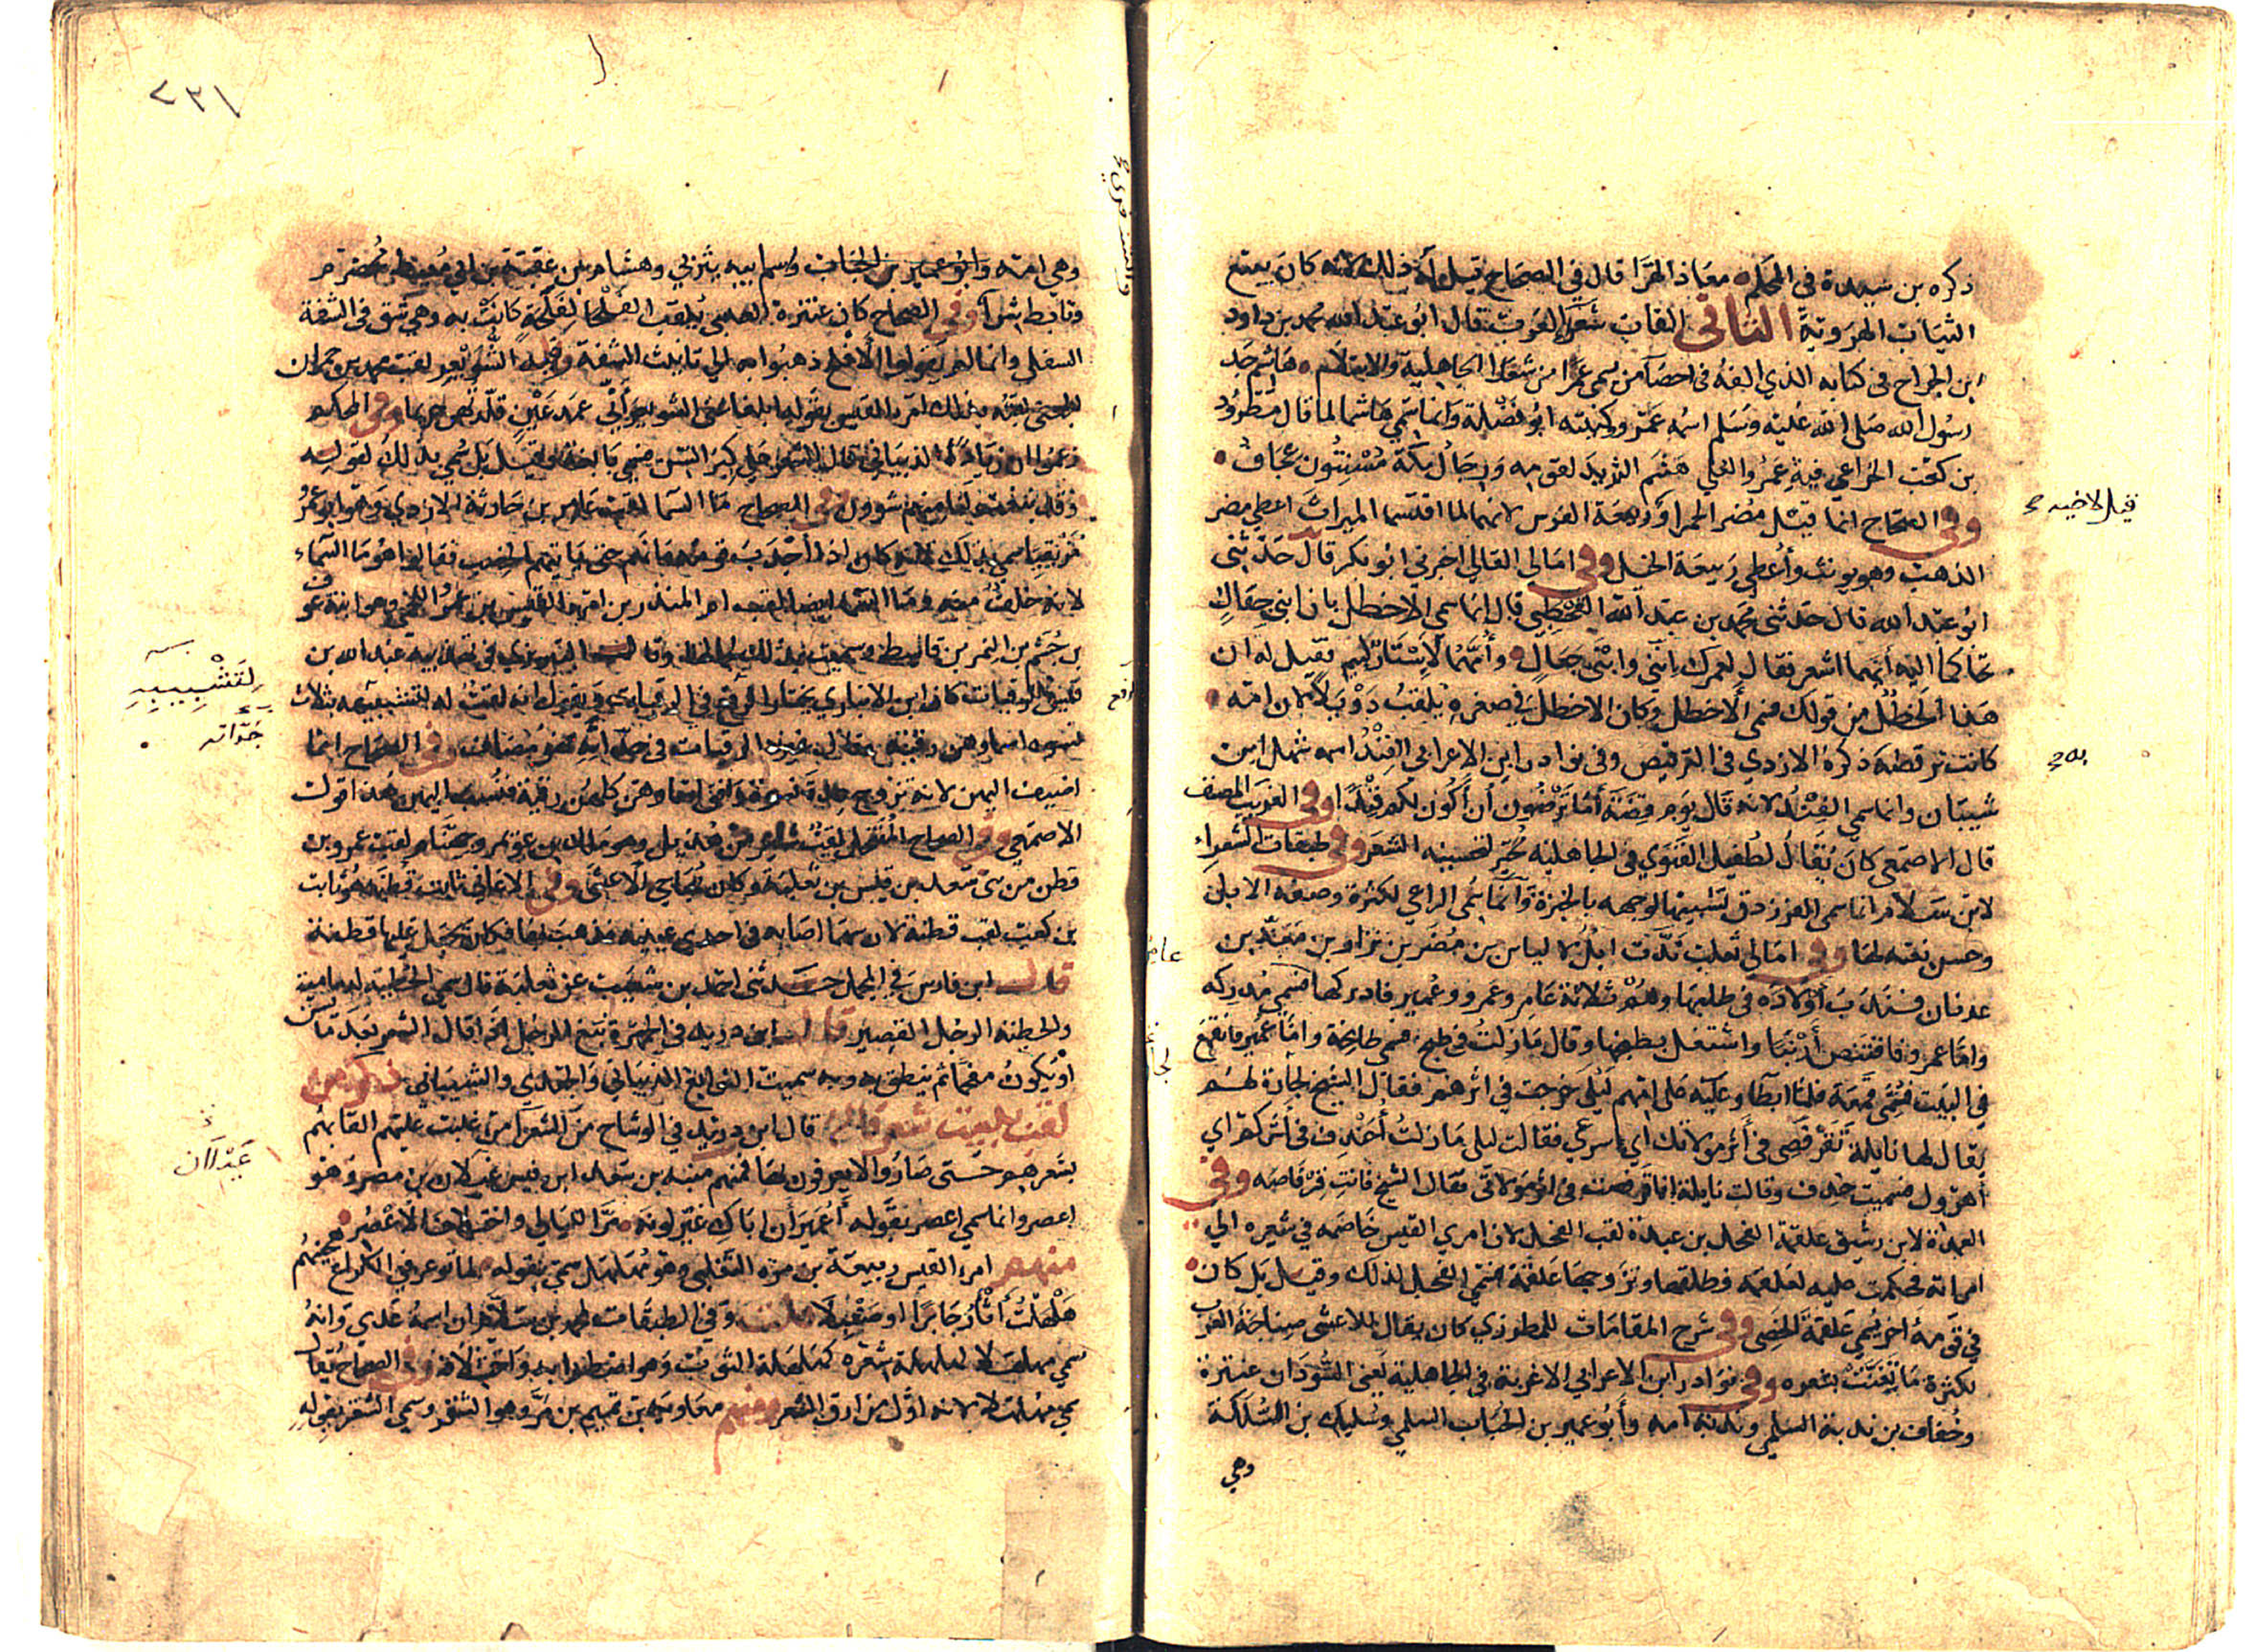 ذكره بن سيدة في المحكم معاذ الهرا قال في الصحاح قيل له ذلك لانه كان يبيع
الثياب الهروية الثاني القاب شعرا العرب قال ابو عبد الله محمد بن داود
ابن الجراح في كتابه الذي الفه في احصا من يسمى عمرا من شعرا الجاهلية والاسلام هاشم جد
رسول الله صلى الله عليه وسلم اسمه عمرو وكنيته ابو نضلة وانما سمي هاشما لما قال مطرود
بن كعب الخزاعي فيه عمرو العلى هشم الثريد لقومه ورجال مكة مسنتون عجاف
وفي الصحاح انما قيل مضر الحمرا وربيعة الفرس لانهما لما اقتسما الميراث اعطي مضر
الذهب وهو يونث وأعطي ربيعة الخيل وفي امالي القالي اخبرني ابو بكر قال حدثني
ابو عبد الله قال حدثني محمد بن عبد الله القحطبي قال انما سمي الاخطل بان ابني جعال
تحاكما اليه أيهما اشعر فقال لعمرك انني وابني جعال وأمهما لإستار لئيم فقيل له ان
هذا الخطل من قولك فسمي الأخطل وكان الاخطل في صغره يلقب دوبلا لان امه
كانت ترقصه به ذكره الازدي في الترقيص وفي نوادر ابن الاعرابي الفند اسمه شهل ابن
شيبان وانما سمي الفند لانه قال يوم قضة أما ترضون أن أكون لكم فندا وفي الغريب المصنف
قال الاصمعي كان يقال لطفيل الغنوي في الجاهلية محبر لتحسينه الشعر وفي طبقات الشعراء
لابن سلام انما سمي الفرزدق لتشبيه الوجهه بالخبزة وانما سمي الراعي لكثرة وصفه الابل
وحسن نعته لها وفي امالي ثعلب ندت ابل الياس بن مضر بن نزار بن معد بن
عدنان فندب أولاده في طلبها وهم ثلاثة عامر وعمرو وعمير فادركها عامر فسمي مدركه
وامّا عمرو فاقتنص أرنبا واشتغل بطبخها وقال ما زلت في طبخ فسمي طابخة وامّا عمير فانقمع
في البيت فسمي قمعة فلما ابطا وعليه على امهم ليلى خرجت في اثرهم فقال الشيخ لجارية لهم
يقال لها نايلة تقرفصي في أثر مولاتك اي اسرعي فقالت ليلى ما زلت أخندف في أثركم اي
أهرول فسميت خندف وقالت نايلة انا قرفصت في اثر مولاتي فقال الشيخ فانت قرفاصه وفي
العمدة لابن رشيق علقمة الفحل بن عبدة لقب الفحل لان امري القيس خاصمه في شعره الي
امراته فحكمت عليه لعلقمه فطلقها وتزوجها علقمة فسمي الفحل لذلك وقيل بل كان
في قومه اخر يسمي علقمة الخصي وفي شرح المقامات للمطرزي كان يقال للاعشى صناجة العرب
لكثرة ما تغنت بشعره وفي نوادر ابن الاعرابي الاغربة في الجاهلية يعني السودان عنترة
وخفاف بن ندبة السلمي وندبة امه وأبو عمير بن الحباب السلمي وسليك بن السلكة
وهي
قيل لاخيه
به
عامر
٢٣١
وهي امته وابو عمير بن الحباب واسم ابيه يثربي وهشام بن عقبة بن ابي معيط مخضرم
وتابط شرا وفي الصحاح كان عنترة العبسي يلقب الفلحا لفلحة كانت به وهي شق في الشفة
السفلى وانما لم يقولوا الأفلح ذهبوا به الي تانيث الشفة وفيه الشويعر لقب محمد بن حمران
الجعفي لقبه بذلك امرؤ القيس بقوله ابلغا عني الشويعر أني عمد عين قلدتهن حريما وفي المحكم
زعموا ان زيادا الذبياني قال الشعر على كبر السن فسمي بالنابغة وقيل بل سمي بذلك لقوله
وقد نبغت لنا منهم شوون وفي الصحاح ما السما لقب عامر بن حارثة الازدي وهو ابو عمرو
مزيقيا سمي بذلك لانه كان اذا اجدب قومه مانهم حتى ياتيهم الخصب فقالوا هو ما السماء
لانه خلف منه وما السما ايضا لقب ام المنذر بن امرؤ القيس بن عمرو اللخمي وهي ابنة عوف
بن جشم بن النمر بن قاسط وسميت بذلك لجمالها وقال التبريزي في تهذيبه عبد الله بن
قيس الرقيات كان ابن الانباري يختار الرفع في الرقيات ويقول انه لقب له لتشبيبه بثلاث
نسوة اسماوهن رقية يقال لهن الرقيات في جداته فهو مضاف وفي الصحاح انما
اضيف اليهن لانه تزوج عدة نسوة وافق اسماوهن كلهن رقية فنسب اليهن هذا قول
الاصمعي وفي الصحاح المتنخل لقب شاعر من هذيل وهو مالك بن عويمر وجهنام لقب عمرو بن
قطن من بني سعد بن قيس بن ثعلبة وكان يهاجي الأعشى وفي الاغاني ثابت قطنة هو ثابت
بن كعب لقب قطنة لان سهما اصابه في احدى عينيه فذهب بها فكان يجعل عليها قطنة
قال ابن فارس في المجمل حدثني احمد بن شعيب عن ثعلب قال سمي الحطيئة لدمامته
والحطيئة الرجل القصير قال ابن دريد في الجمهرة نبغ الرجل اذا قال الشعر بعد ما يسن
او يكون مفحما ثم ينطق به وبه سميت النوابغ الذبياني والجعدي والشيباني ذكر من
لقب ببيت شعر قاله قال ابن دريد في الوشاح من الشعرا من غلبت عليهم القابهم
بشعرهم حتى صاروا لا يعرفون الا بها فمنهم منبه بن سعد ابن قيس عيلان بن مضر وهو
اعصر وانما سمي اعصر بقوله أعمير أن اباك غير لونه مر الليالي واختلاف الأعصر
منهم امرؤ القيس ربيعة بن مره التغلبي وهو مهلهل سمي بقوله لما توعر في الكراع هجينهم
هلهلت أثأر جابرا او صنبلا قلت وفي الطبقات لمحمد بن سلام ان اسمه عدي وانه
سمي مهلهلا لهلهلة شعره كهلهلة الثوب وهو اضطرابه واختلافه وفي الصحاح يقال
سمي مهلهلا لانه اول من ارق الشعر ومنهم معاوية بن تميم بن مر وهو الشقر وسمي الشقر بقوله
لتشبيبه
جداته
عيلان